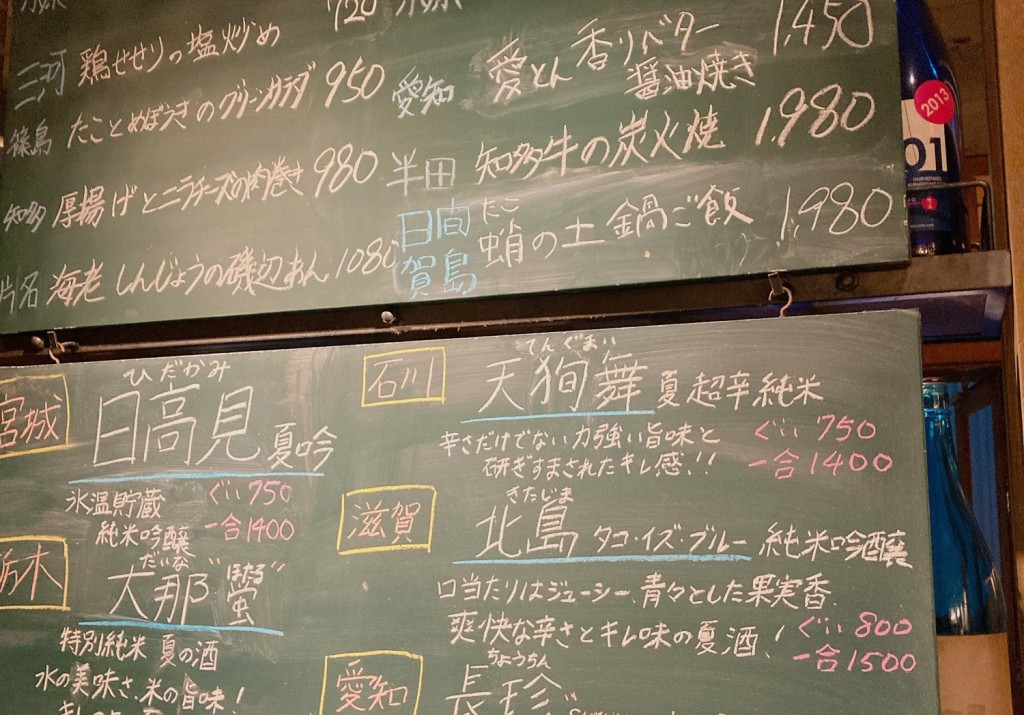 720
三河 鶏せせりの塩炒め 950
篠島 たことめぼうきのグリーンサラダ 980
知多 厚揚げとニラチーズの肉巻き
片名 海老しんじょうの磯辺あん 1080
愛知 愛とん 香りバター醤油焼き 1,450
半田 知多牛の炭火焼 1,980
日間賀島 蛸の土鍋ご飯 1,980
たこ
2013
01
宮城
ひだかみ
日高見 夏吟
氷温貯蔵 ぐい 750
純米吟醸 一合1400
栃木
だいな "ほたる"
大那 蛍
特別純米 夏の酒
水の美味さ、米の旨味!
石川
てんぐまい
天狗舞 夏 超辛純米
辛さだけでない力強い旨味と ぐい 750
研ぎすまされたキレ感!! 一合1400
滋賀
きたじま
北島 タコ・イズ・ブルー 純米吟醸
口当たりはジューシー、青々とした果実香、
爽快な辛さとキレ味の夏酒! ぐい 800
一合1500
愛知
ちょうちん
長珍